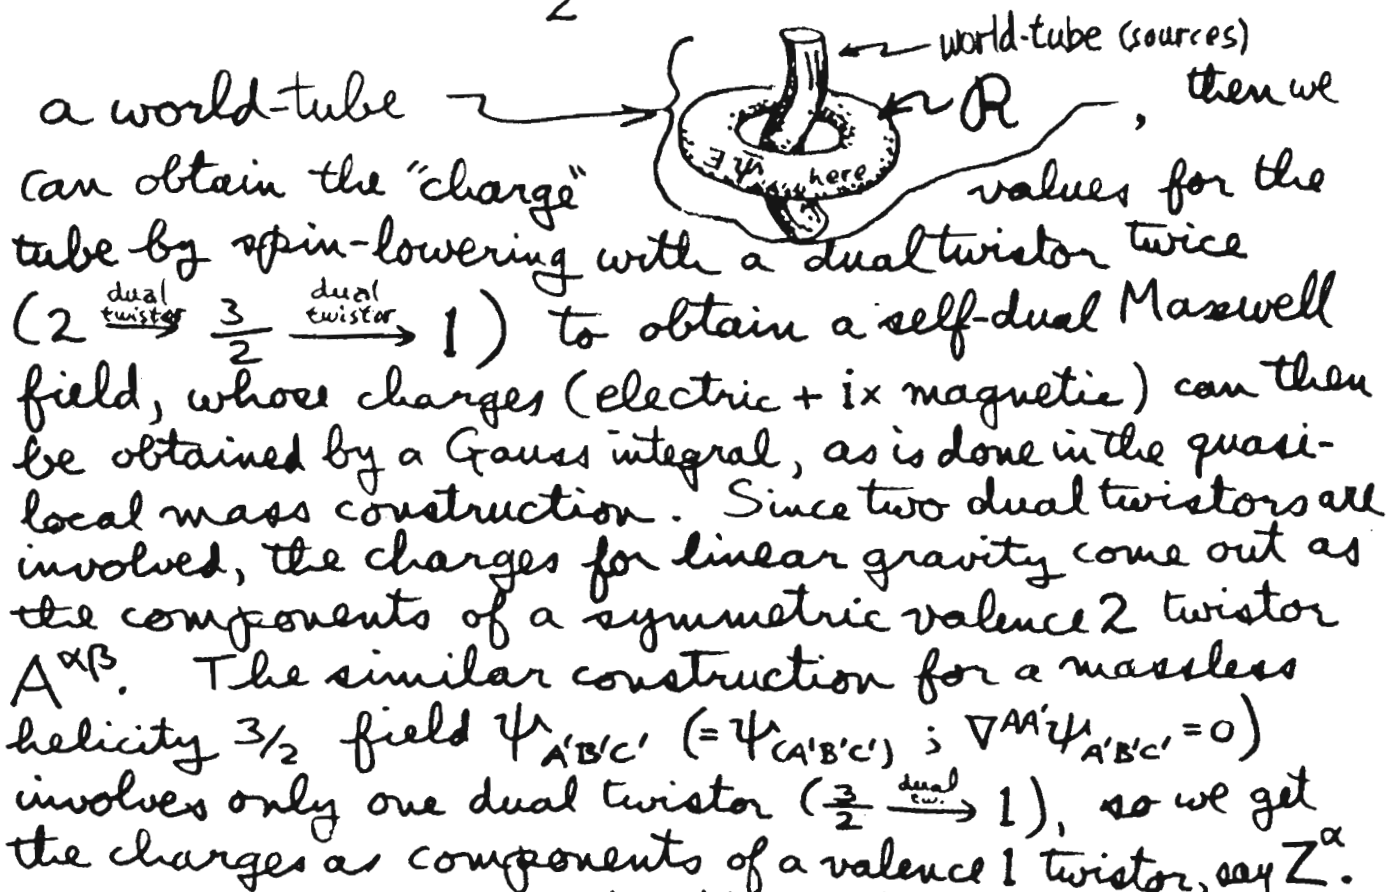 2
world-tube (sources)
a world-tube R , then we
∃ψ here
can obtain the "charge" values for the
tube by spin-lowering with a dual twistor twice
(2 dual twistor → 3/2 dual twistor → 1) to obtain a self-dual Maxwell
field, whose charges (electric + i× magnetic) can then
be obtained by a Gauss integral, as is done in the quasi-
local mass construction. Since two dual twistors are
involved, the charges for linear gravity come out as
the components of a symmetric valence 2 twistor
A^αβ. The similar construction for a massless
helicity 3/2 field ψ_A'B'C' (= ψ_(A'B'C') ; ∇^AA' ψ_A'B'C' = 0)
involves only one dual twistor (3/2 dual tw. → 1), so we get
the charges as components of a valence 1 twistor, say Z^α.